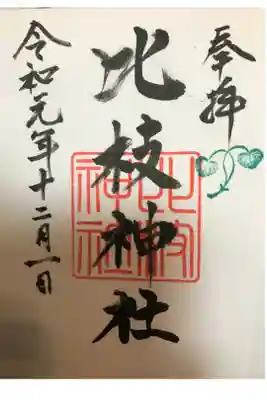 奉拝
比枝神社
比枝神社
令和元年十二月一日